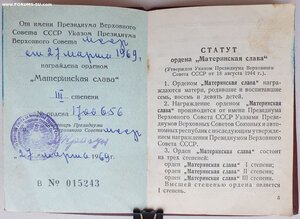 FORUMS-SU.COM
От имени Президиума Верховного
Совета СССР Указом Президиума
Верховного Совета
от 27 марта 1969 г.
награждена орденом
„Материнская слава"
III степени
№ 1700656
Президиума
Верховного Совета
„27" марта 1969 г.
В № 015243
СТАТУТ
ордена „Материнская слава"
(Утвержден Указом Президиума Верховного
Совета СССР от 18 августа 1944 г.)
1. Орденом „Материнская слава" награждаются матери, родившие и воспитавшие
семь, восемь и девять детей.
2. Награждение орденом „Материнская
слава" производится от имени Президиума
Верховного Совета СССР Указами Президиумов Верховных Советов Союзных и автономных республик
3. Орден „Материнская слава" состоит
из трех степеней:
орден „Материнская слава" I степени;
орден „Материнская слава" II степени;
орден „Материнская слава" III степени.
Высшей степенью ордена является
I степень.